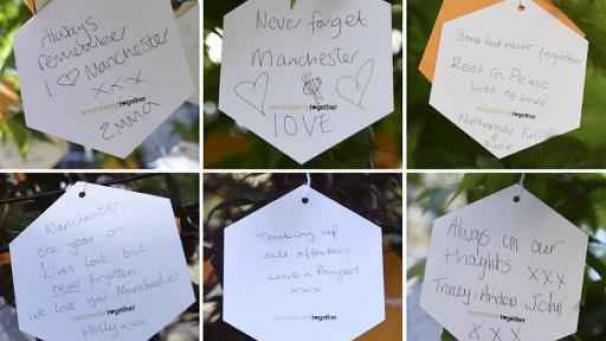 Always
remember
I Manchester
xxx
manchestertogether
EMMA
Never forget
Manchester
manchestertogether
LOVE
Gone but never forgotten
Rest in Peace
Lots of love
manchestertogether
Manchester
one year on
Lives lost but
never forgotten
we love you Manchester
manchestertogether
Holly xxx
Thinking of
all affected
xxx
manchestertogether
Always in our
thoughts xxx
Tracey, John
manchestertogether
xxx